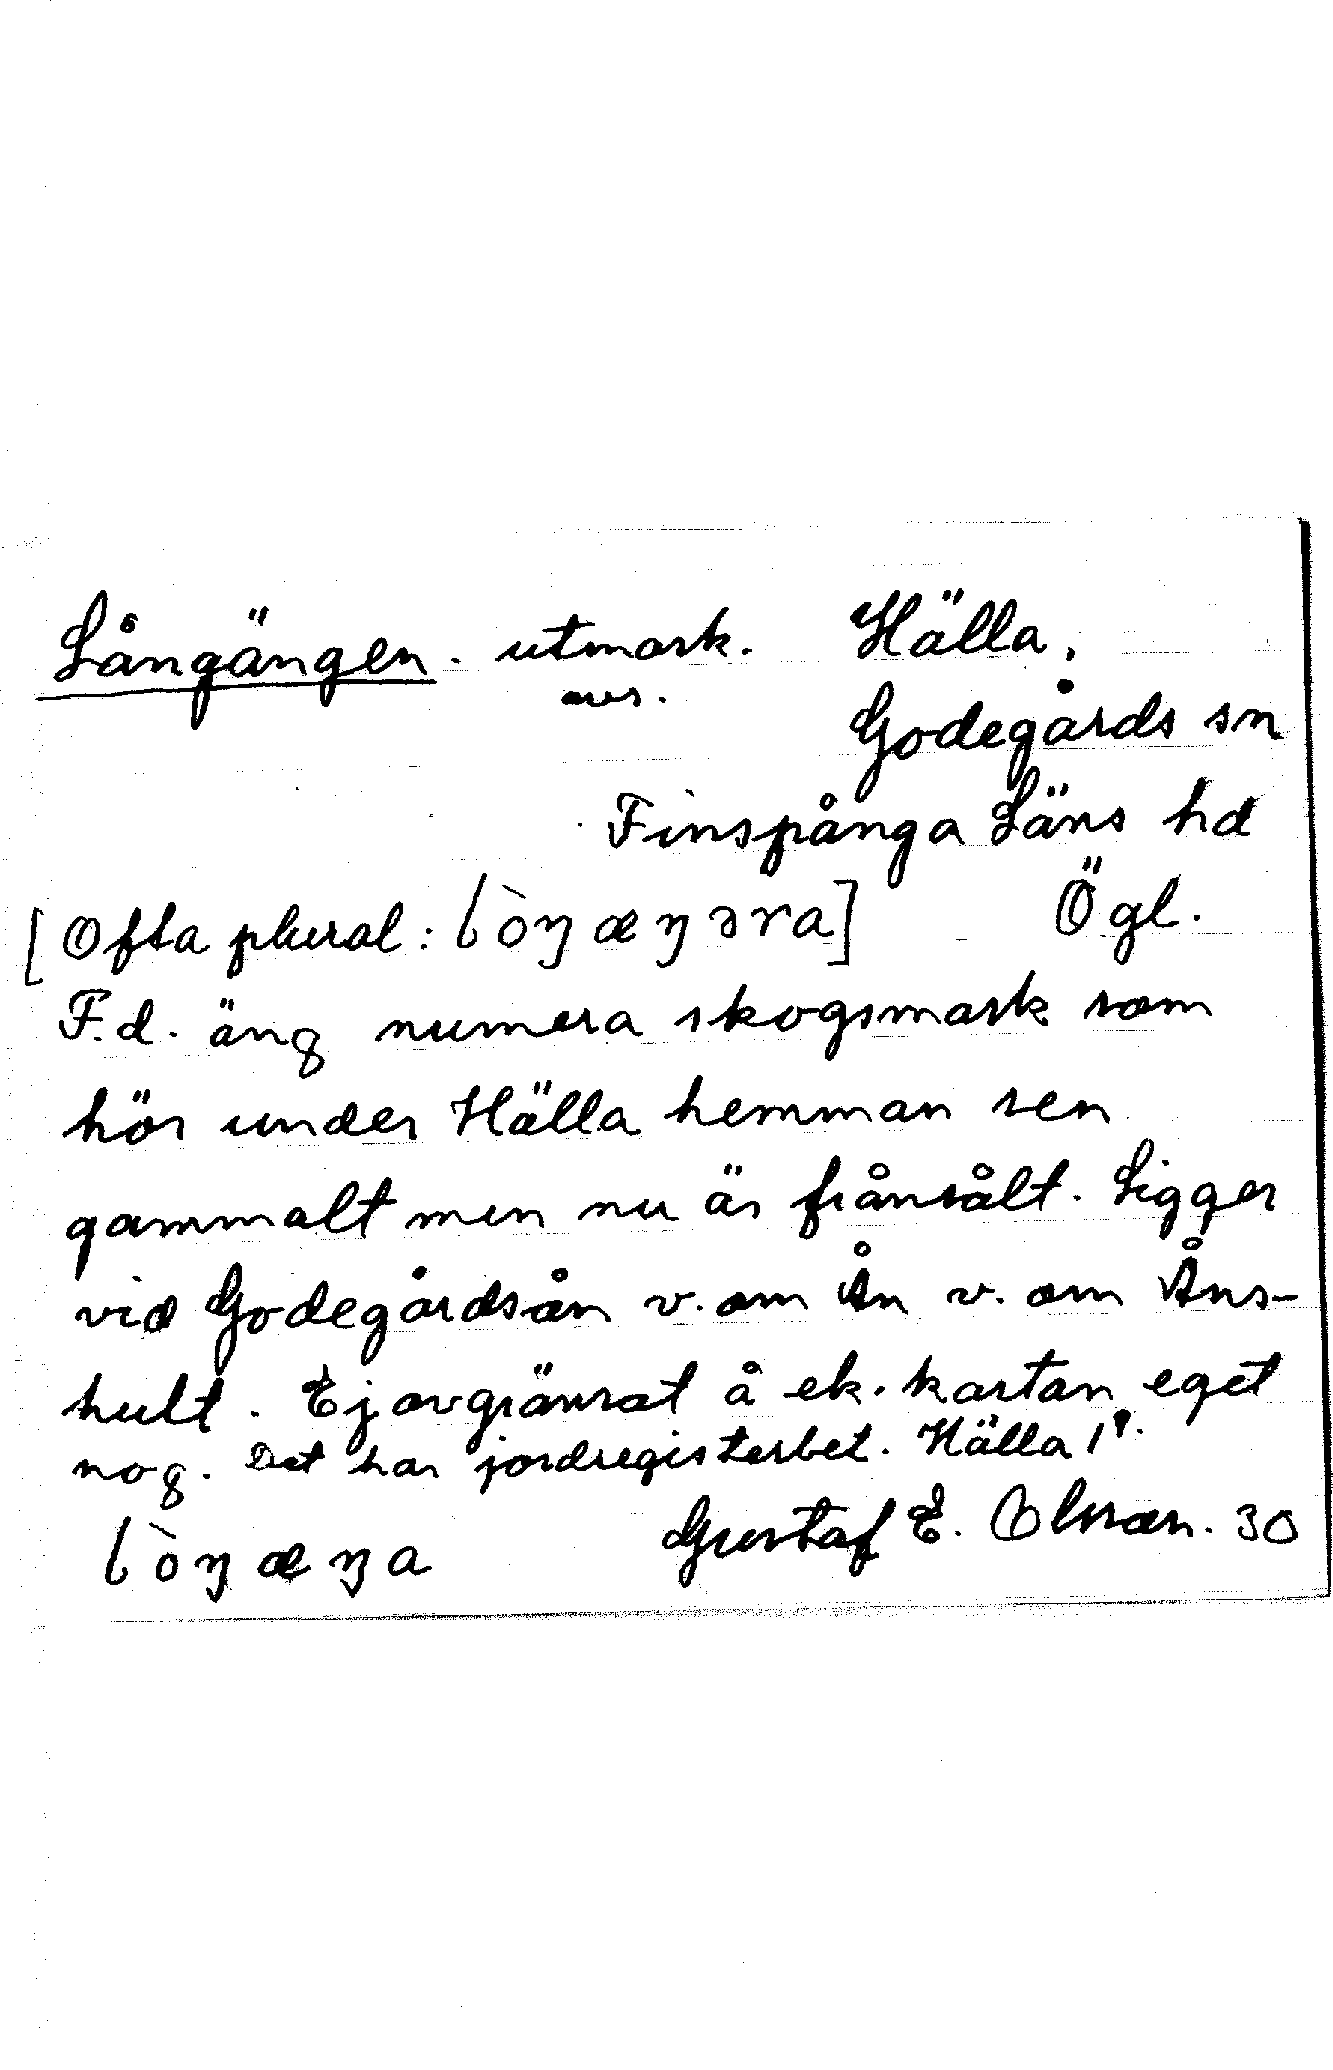 Långängen. utmark. Hälla,
avs. Godegårds sn
Finspånga Läns hd
[Ofta plural: lòŋæŋəra] Ögl.
F.d. äng numera skogsmark som
hör under Hälla hemman sen
gammalt men nu är frånsålt. Ligger
vid Godegårdsån v. om Ån v. om Åns-
hult. Ej avgränsat å ek. kartan eget
nog. Det har jordregisterbet. Hälla 1⁹.
lòŋæŋa Gustaf E. Olsson. 30